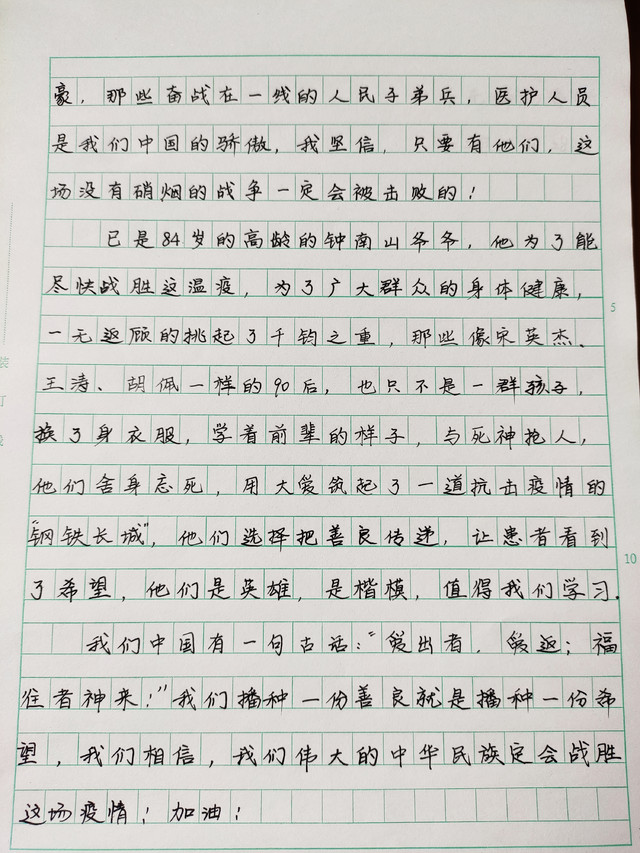 豪，那些奋战在一线的人民子弟兵，医护人员
是我们中国的骄傲，我坚信，只要有他们，这
场没有硝烟的战争一定会被击败的！
已是84岁的高龄的钟南山爷爷，他为了能
尽快战胜这温疫，为了广大群众的身体健康，
5
一无返顾的挑起了千钧之重，那些像宋英杰、
王涛、胡佩一样的90后，也只不是一群孩子，
换了身衣服，学着前辈的样子，与死神抢人，
他们舍身忘死，用大爱筑起了一道抗击疫情的
“钢铁长城”，他们选择把善良传递，让患者看到
10
了希望，他们是英雄，是楷模，值得我们学习．
我们中国有一句古话：“爱出者，爱返；福
往者神来！”我们播种一份善良就是播种一份希
望，我们相信，我们伟大的中华民族定会战胜
这场疫情！加油！
装
订